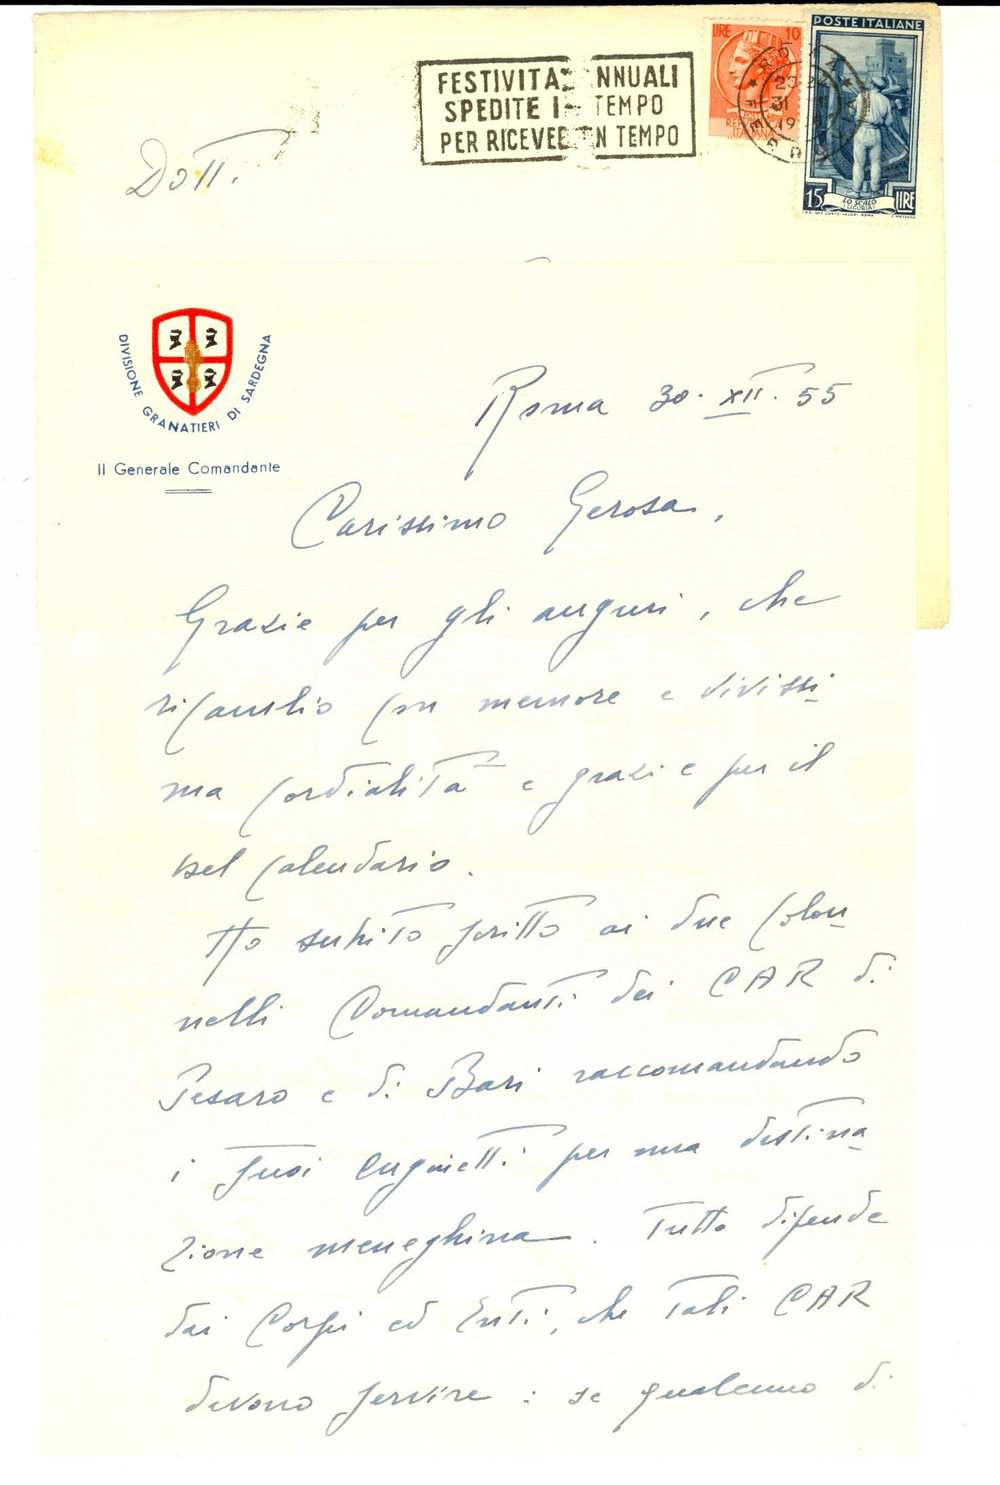 FESTIVITA NNUALI
SPEDITE I TEMPO
PER RICEVE N TEMPO
LIRE 10
REPUBBLICA
ITALIANA
POSTE ITALIANE
15 LO SCALO LIRE
(LIGURIA)
ROMA
20-21
31
19
FERROVIA
Dott.
DIVISIONE GRANATIERI DI SARDEGNA
Il Generale Comandante
Roma 30. XII. 55
Carissimo Gerosa,
Grazie per gli auguri, che
ricambio con memore e vivissi-
ma cordialità e grazie per il
bel calendario.
Ho subito scritto ai due Colon-
nelli Comandanti dei CAR di
Pesaro e di Bari raccomandando
i suoi cuginetti per una destina-
zione meneghina. Tutto dipende
dai Corpi ed Enti, che tali CAR
devono servire: se qualcuno di